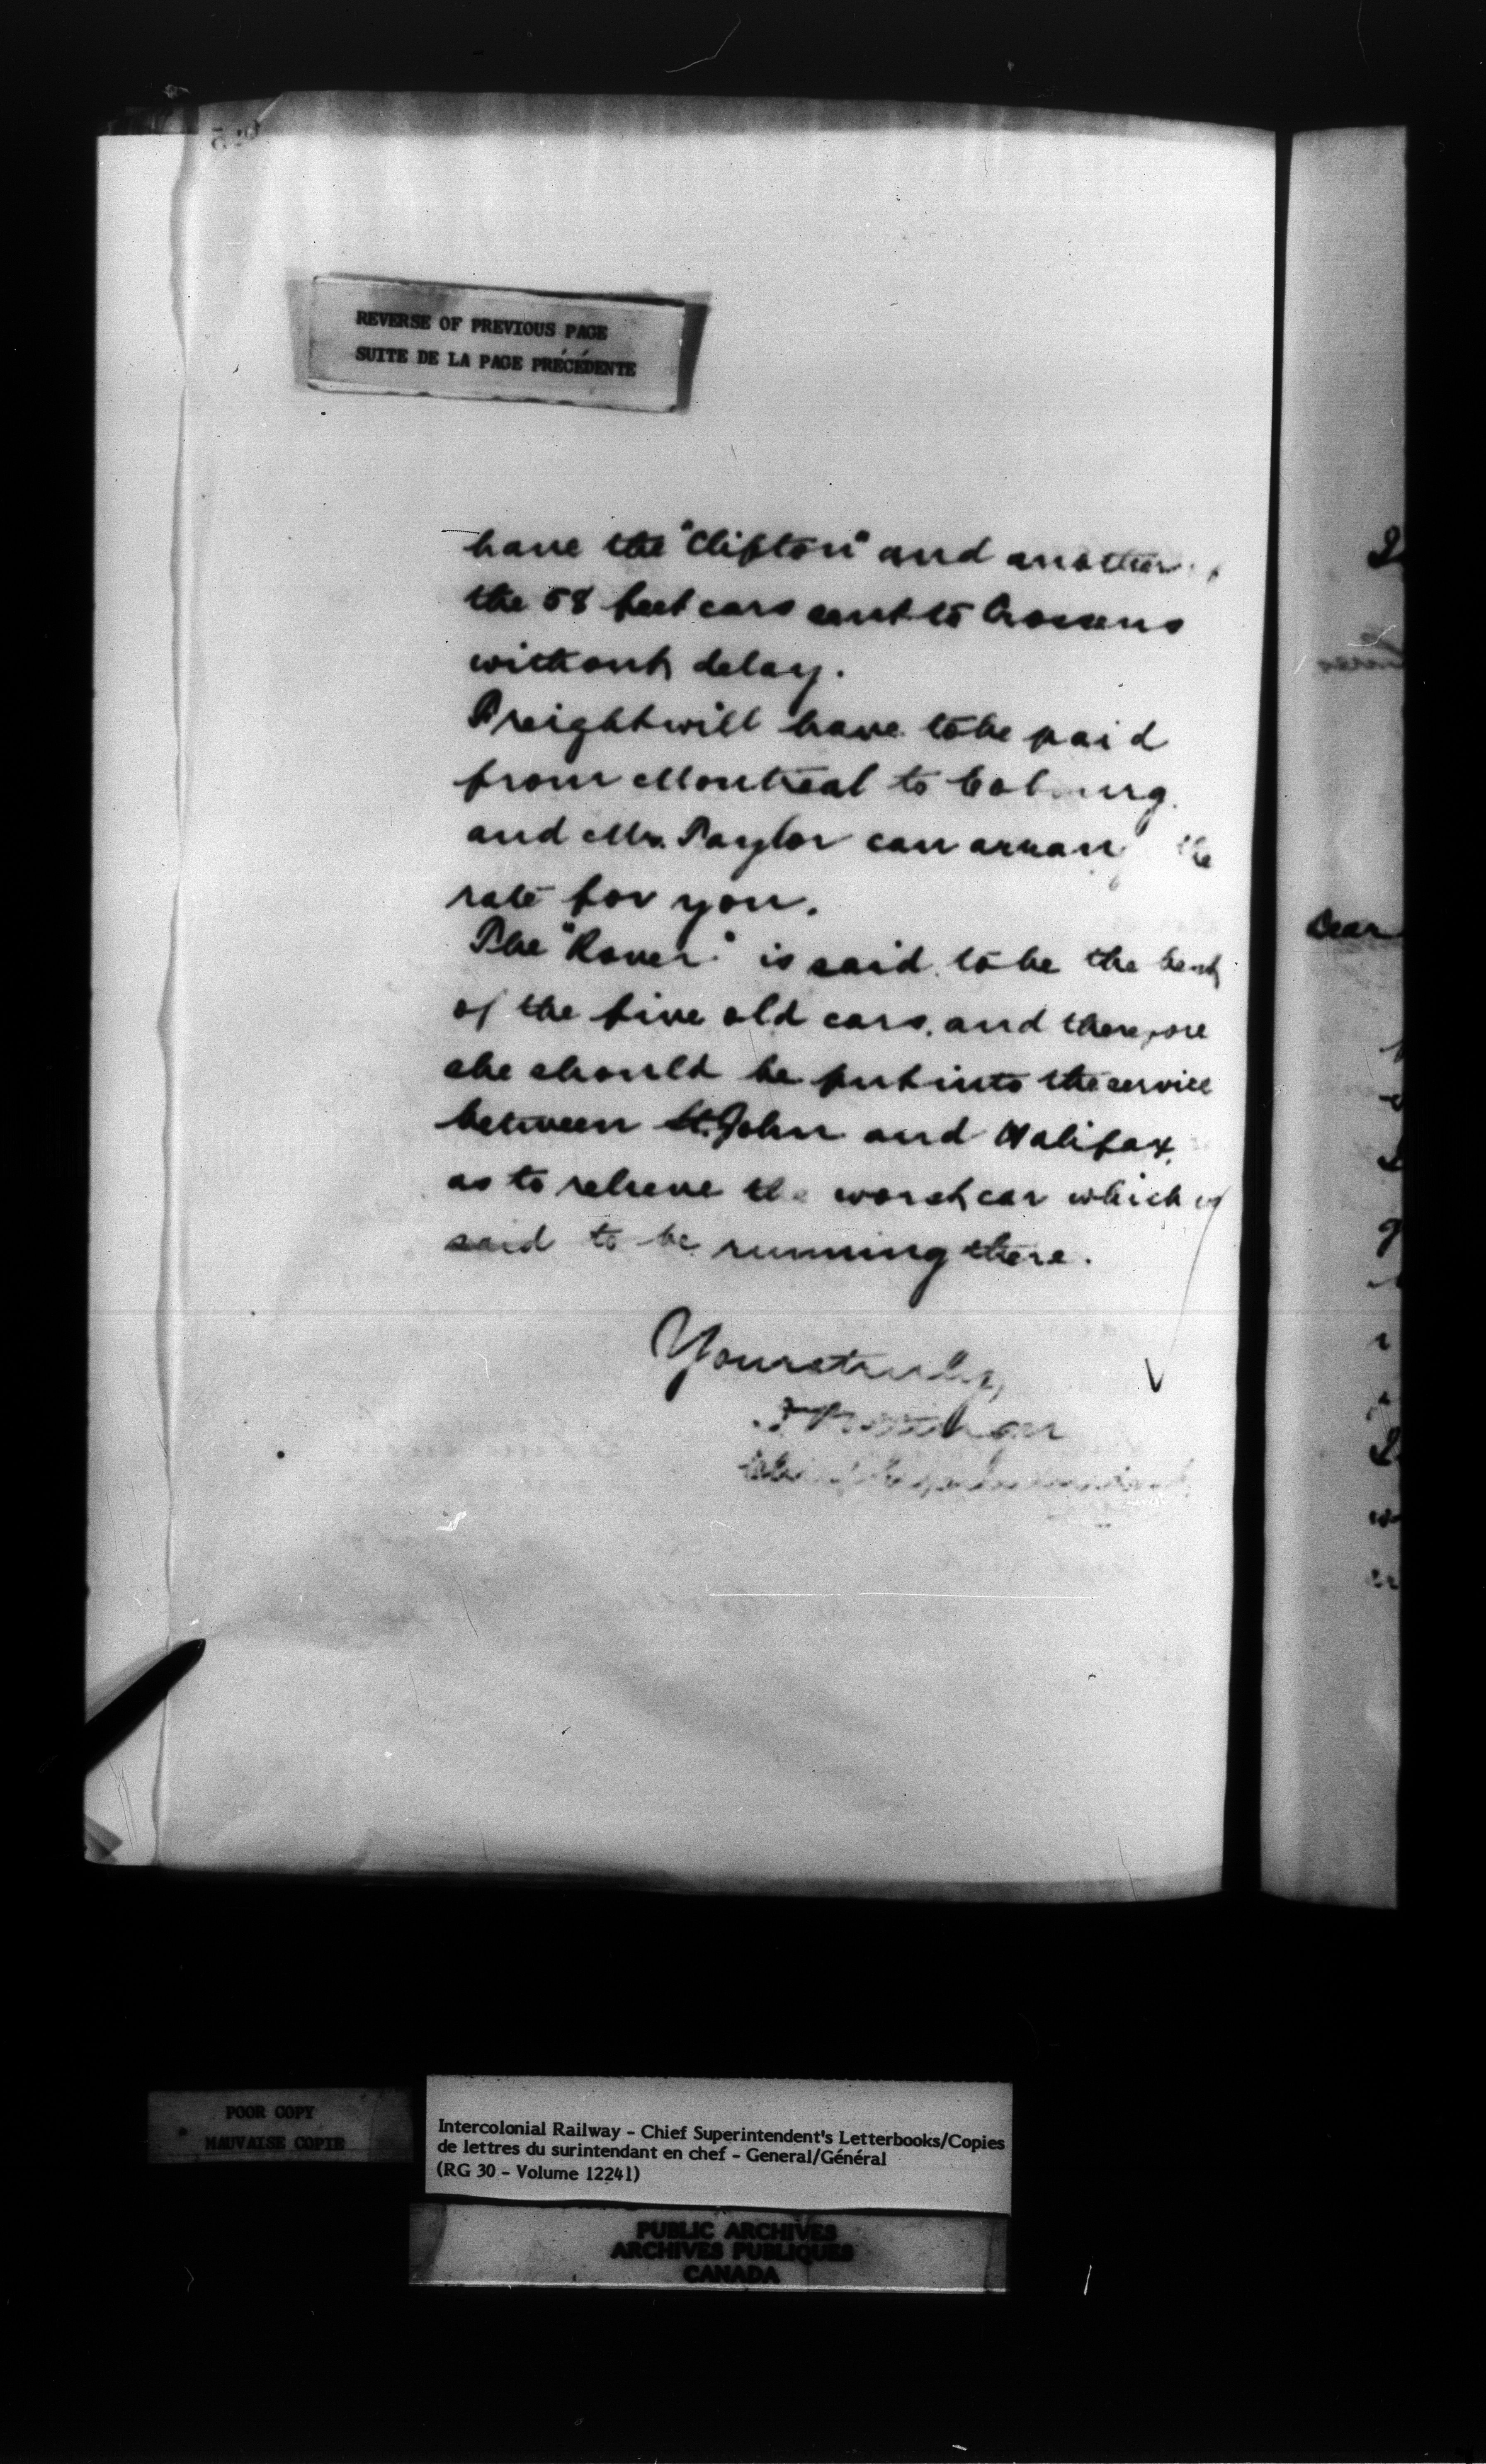 REVERSE OF PREVIOUS PAGE
SUITE DE LA PAGE PRÉCÉDENTE
have the "Clifton" and another
the 58 feet cars sent to Crossens
without delay.
Freight will have to be paid
from Montreal to Cobourg.
and Mr. Taylor can arran the
rate for you.
The "Rover" is said to be the best
of the five old cars, and therefore
she should be put into the service
between St. John and Halifax,
as to relieve the worst car which is
said to be running there.
Yours truly,
Chief Superintendent
Dear
POOR COPY
MAUVAISE COPIE
Intercolonial Railway - Chief Superintendent's Letterbooks/Copies
de lettres du surintendant en chef - General/Général
(RG 30 - Volume 12241)
PUBLIC ARCHIVES
ARCHIVES PUBLIQUES
CANADA